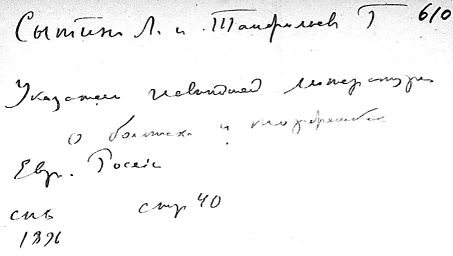 Сытин Л. и Танфильев Г 610
Указатель литературы
о болотах и торфяниках
Евр. России
спб стр 40
1896